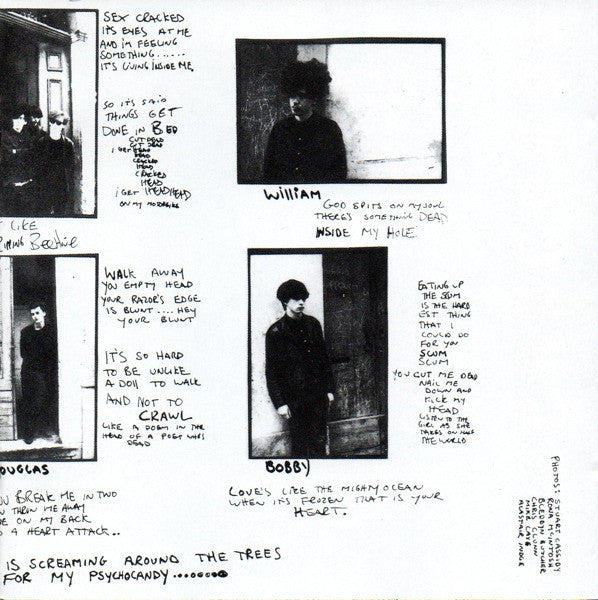 SEX CRACKED
IT'S EYES AT ME
AND I'M FEELING
SOMETHING......
IT'S LIVING INSIDE ME.
SO IT'S SAID
THINGS GET
DONE IN BED
CUT DEAD
CUT DEAD
I GET HEAD
DEAD
CRACKED
HEAD
CRACKED
HEAD
I GET HEADHEAD
ON MY MOTORBIKE
LIKE
Beehive
WILLIAM
GOD SPITS ON MY SOUL
THERE'S SOMETHING DEAD
INSIDE MY HOLE.
WALK AWAY
YOU EMPTY HEAD
YOUR RAZOR'S EDGE
IS BLUNT.... HEY
YOUR BLUNT
IT'S SO HARD
TO BE UNLIKE
A DOLL TO WALK
AND NOT TO
CRAWL
LIKE A POEM IN THE
HEAD OF A POET WHO'S
DEAD
OUGLAS
BOBBY
EATING UP
THE SCUM
IS THE HARD
EST THING
THAT I
COULD DO
FOR YOU
SCUM
SCUM
YOU CUT ME DEAD
NAIL ME
DOWN AND
KICK MY
HEAD
LISTEN TO THE
GIRL AS SHE
TAKES ON HALF
THE WORLD
U BREAK ME IN TWO
THRIN ME AWAY
ON MY BACK
A HEART ATTACK..
LOVE'S LIKE THE MIGHTY OCEAN
WHEN IT'S FROZEN THAT IS YOUR
HEART.
IS SCREAMING AROUND THE TREES
FOR MY PSYCHOCANDY.........
PHOTOS: STUART CASSIDY
RONA McINTOSH
BLEDDYN BUTCHER
CHRIS CLUNN
MIKE LAYE
ALASTAIR INDGE